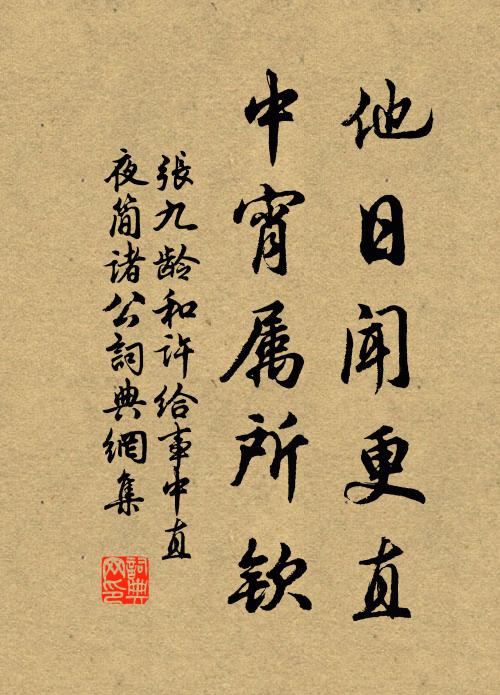 他日闻更直
中宵属所钦
張九龄和许给事中直
夜简诸公詞典網集
詞典
网印